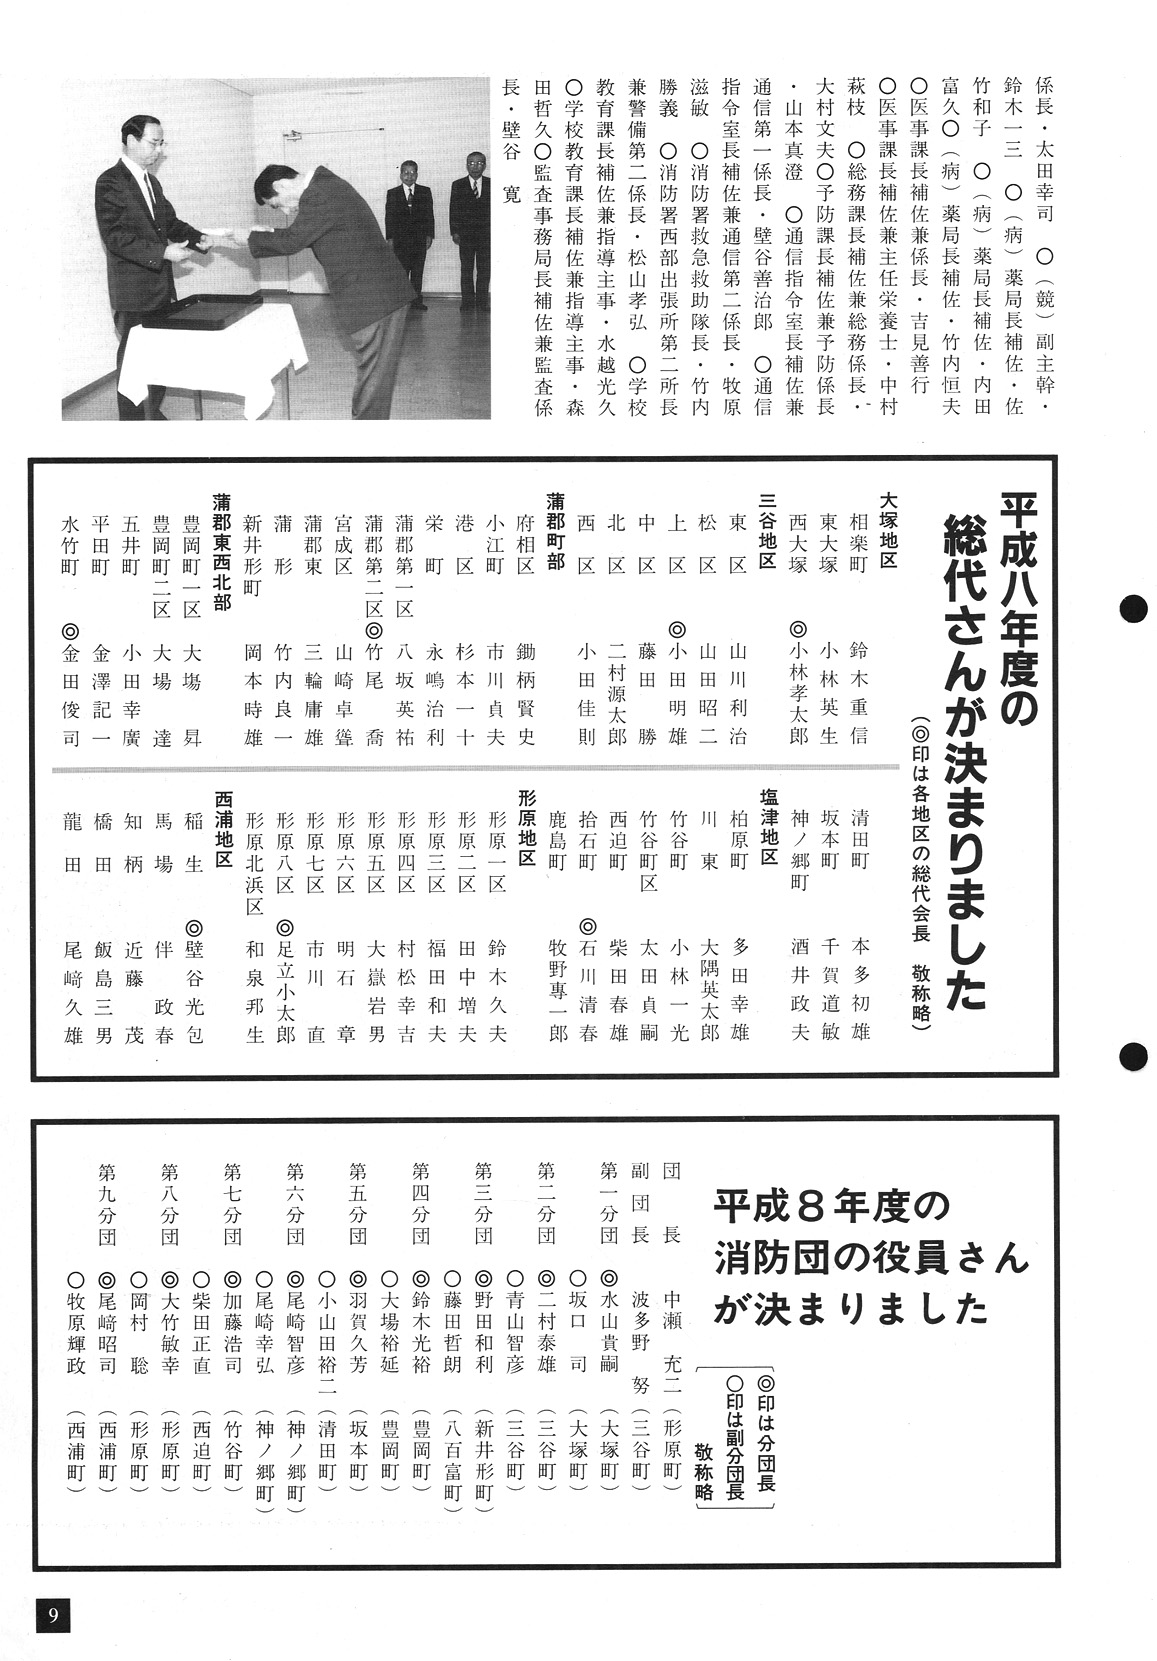 係長・太田幸司　〇（競）副主幹・
鈴木一三　〇（病）薬局長補佐・佐
竹和子　〇（病）薬局長補佐・内田
富久〇（病）薬局長補佐・竹内恒夫
〇医事課長補佐兼係長・吉見善行
〇医事課長補佐兼主任栄養士・中村
萩枝　〇総務課長補佐兼総務係長・
大村文夫〇予防課長補佐兼予防係長
・山本真澄　〇通信指令室長補佐兼
通信第一係長・壁谷善治郎　〇通信
指令室長補佐兼通信第二係長・牧原
滋敏　〇消防署救急救助隊長・竹内
勝義　〇消防署西部出張所第二所長
兼警備第二係長・松山孝弘　〇学校
教育課長補佐兼指導主事・水越光久
〇学校教育課長補佐兼指導主事・森
田哲久〇監査事務局長補佐兼監査係
長・壁谷　寛
平成八年度の
総代さんが決まりました
（◎印は各地区の総代会長　敬称略）
大塚地区
相楽町　鈴木重信
東大塚　小林英生
西大塚　◎小林孝太郎
三谷地区
東区　山川利治
松区　山田昭二
上区　◎小田明雄
中区　藤田勝
北区　二村源太郎
西区　小田佳則
蒲郡町部
府相区　鋤柄賢史
小江町　市川貞夫
港区　杉本一十
栄町　永嶋治利
蒲郡第一区　八坂英祐
蒲郡第二区　◎竹尾喬
宮成区　山崎卓聳
蒲郡東　三輪庸雄
蒲形　竹内良一
新井形町　岡本時雄
蒲郡東西北部
豊岡町一区　大場昇
豊岡町二区　大場達
五井町　小田幸廣
平田町　金澤記一
水竹町　◎金田俊司
清田町　本多初雄
坂本町　千賀道敏
神ノ郷町　酒井政夫
塩津地区
柏原町　多田幸雄
川東　大隅英太郎
竹谷町　小林一光
竹谷町区　太田貞嗣
西迫町　柴田春雄
拾石町　◎石川清春
鹿島町　牧野專一郎
形原地区
形原一区　鈴木久夫
形原二区　田中増夫
形原三区　福田和夫
形原四区　村松幸吉
形原五区　大嶽岩男
形原六区　明石章
形原七区　市川直
形原八区　◎足立小太郎
形原北浜区　和泉邦生
西浦地区
稲生　◎壁谷光包
馬場　伴政春
知柄　近藤茂
橋田　飯島三男
龍田　尾﨑久雄
平成８年度の
消防団の役員さん
が決まりました
◎印は分団長
〇印は副分団長
敬称略
団長　中瀬充二（形原町）
副団長　波多野努（三谷町）
第一分団　◎水山貴嗣（大塚町）
〇坂口司（大塚町）
第二分団　◎二村泰雄（三谷町）
〇青山智彦（三谷町）
第三分団　◎野田和利（新井形町）
〇藤田哲朗（八百富町）
第四分団　◎鈴木光裕（豊岡町）
〇大場裕延（豊岡町）
第五分団　◎羽賀久芳（坂本町）
〇小山田裕二（清田町）
第六分団　◎尾崎智彦（神ノ郷町）
〇尾崎幸弘（神ノ郷町）
第七分団　◎加藤浩司（竹谷町）
〇柴田正直（西迫町）
第八分団　◎大竹敏幸（形原町）
〇岡村聡（形原町）
第九分団　◎尾﨑昭司（西浦町）
〇牧原輝政（西浦町）
9